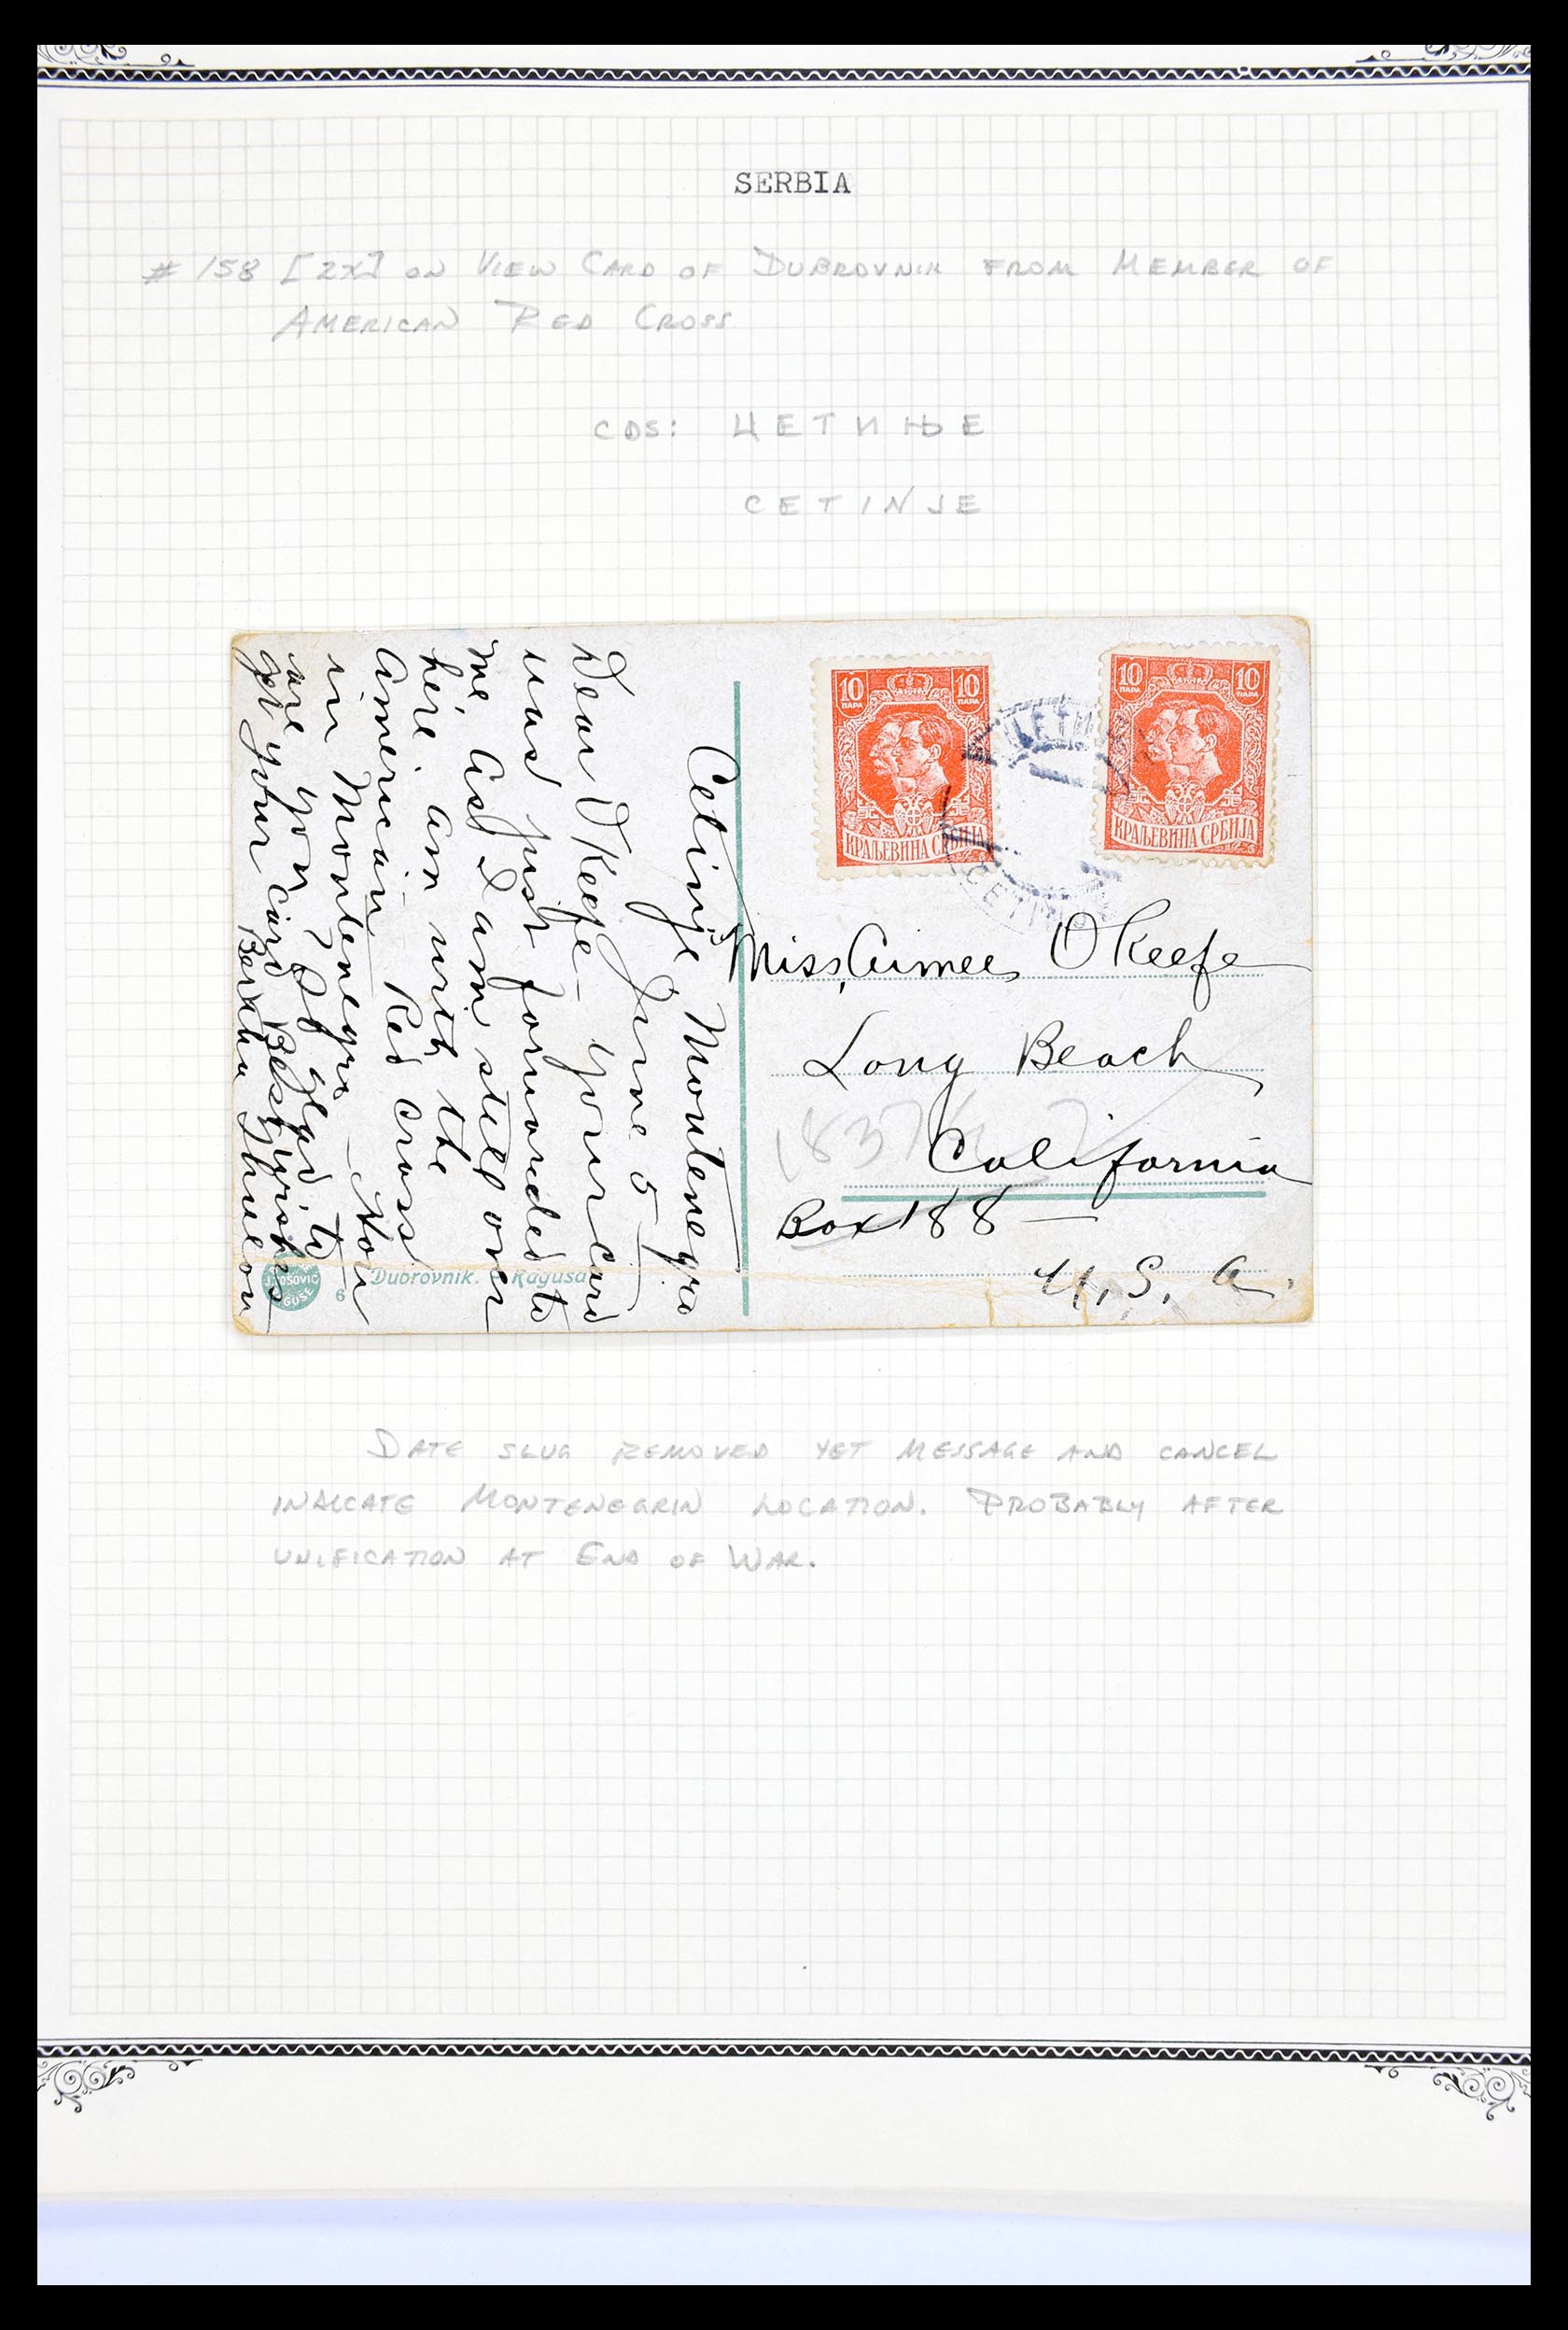 SERBIA
# 158 [2X] ON VIEW CARD OF DUBROVNIK FROM MEMBER OF
AMERICAN RED CROSS
CDS: ЦЕТИЊЕ
CETINJE
10 ПАРА 10 ПАРА
КРАЉЕВИНА СРБИЈА
10 ПАРА 10 ПАРА
КРАЉЕВИНА СРБИЈА
Cetinje Montenegro
June 5
Dear OKeefe - your card
was just forwarded to
me. As I am still over
here. am with the
American Red Cross
in Montenegro - How
are you? So glad to
get your card Best wishes
Bertha
Miss, Aimee OKeefe
Long Beach
California
Box 188 —
U. S. A.
Dubrovnik. Ragusa
6
DATE SLUG REMOVED YET MESSAGE AND CANCEL
INDICATE MONTENEGRIN LOCATION. PROBABLY AFTER
UNIFICATION AT END OF WAR.